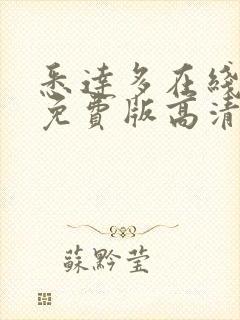 悉達多在綫
免費版高清
蘇黔莹